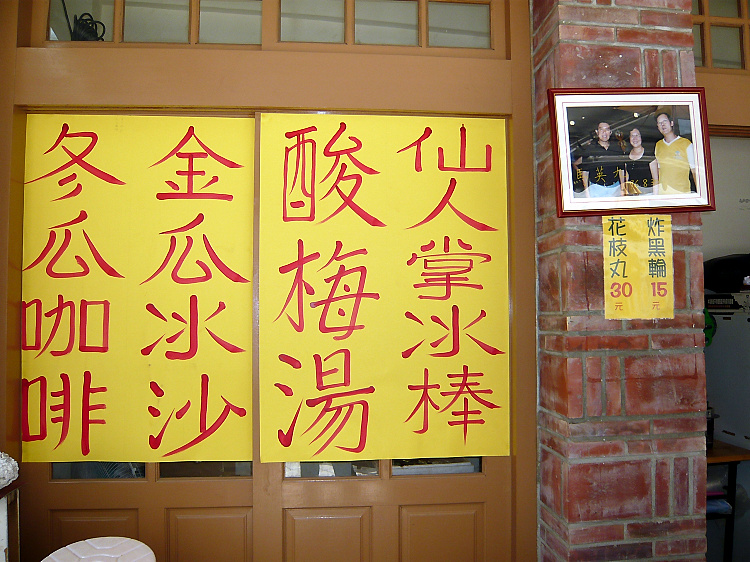 仙人掌冰棒
酸梅湯
金瓜冰沙
冬瓜咖啡
炸黑輪15元
花枝丸30元